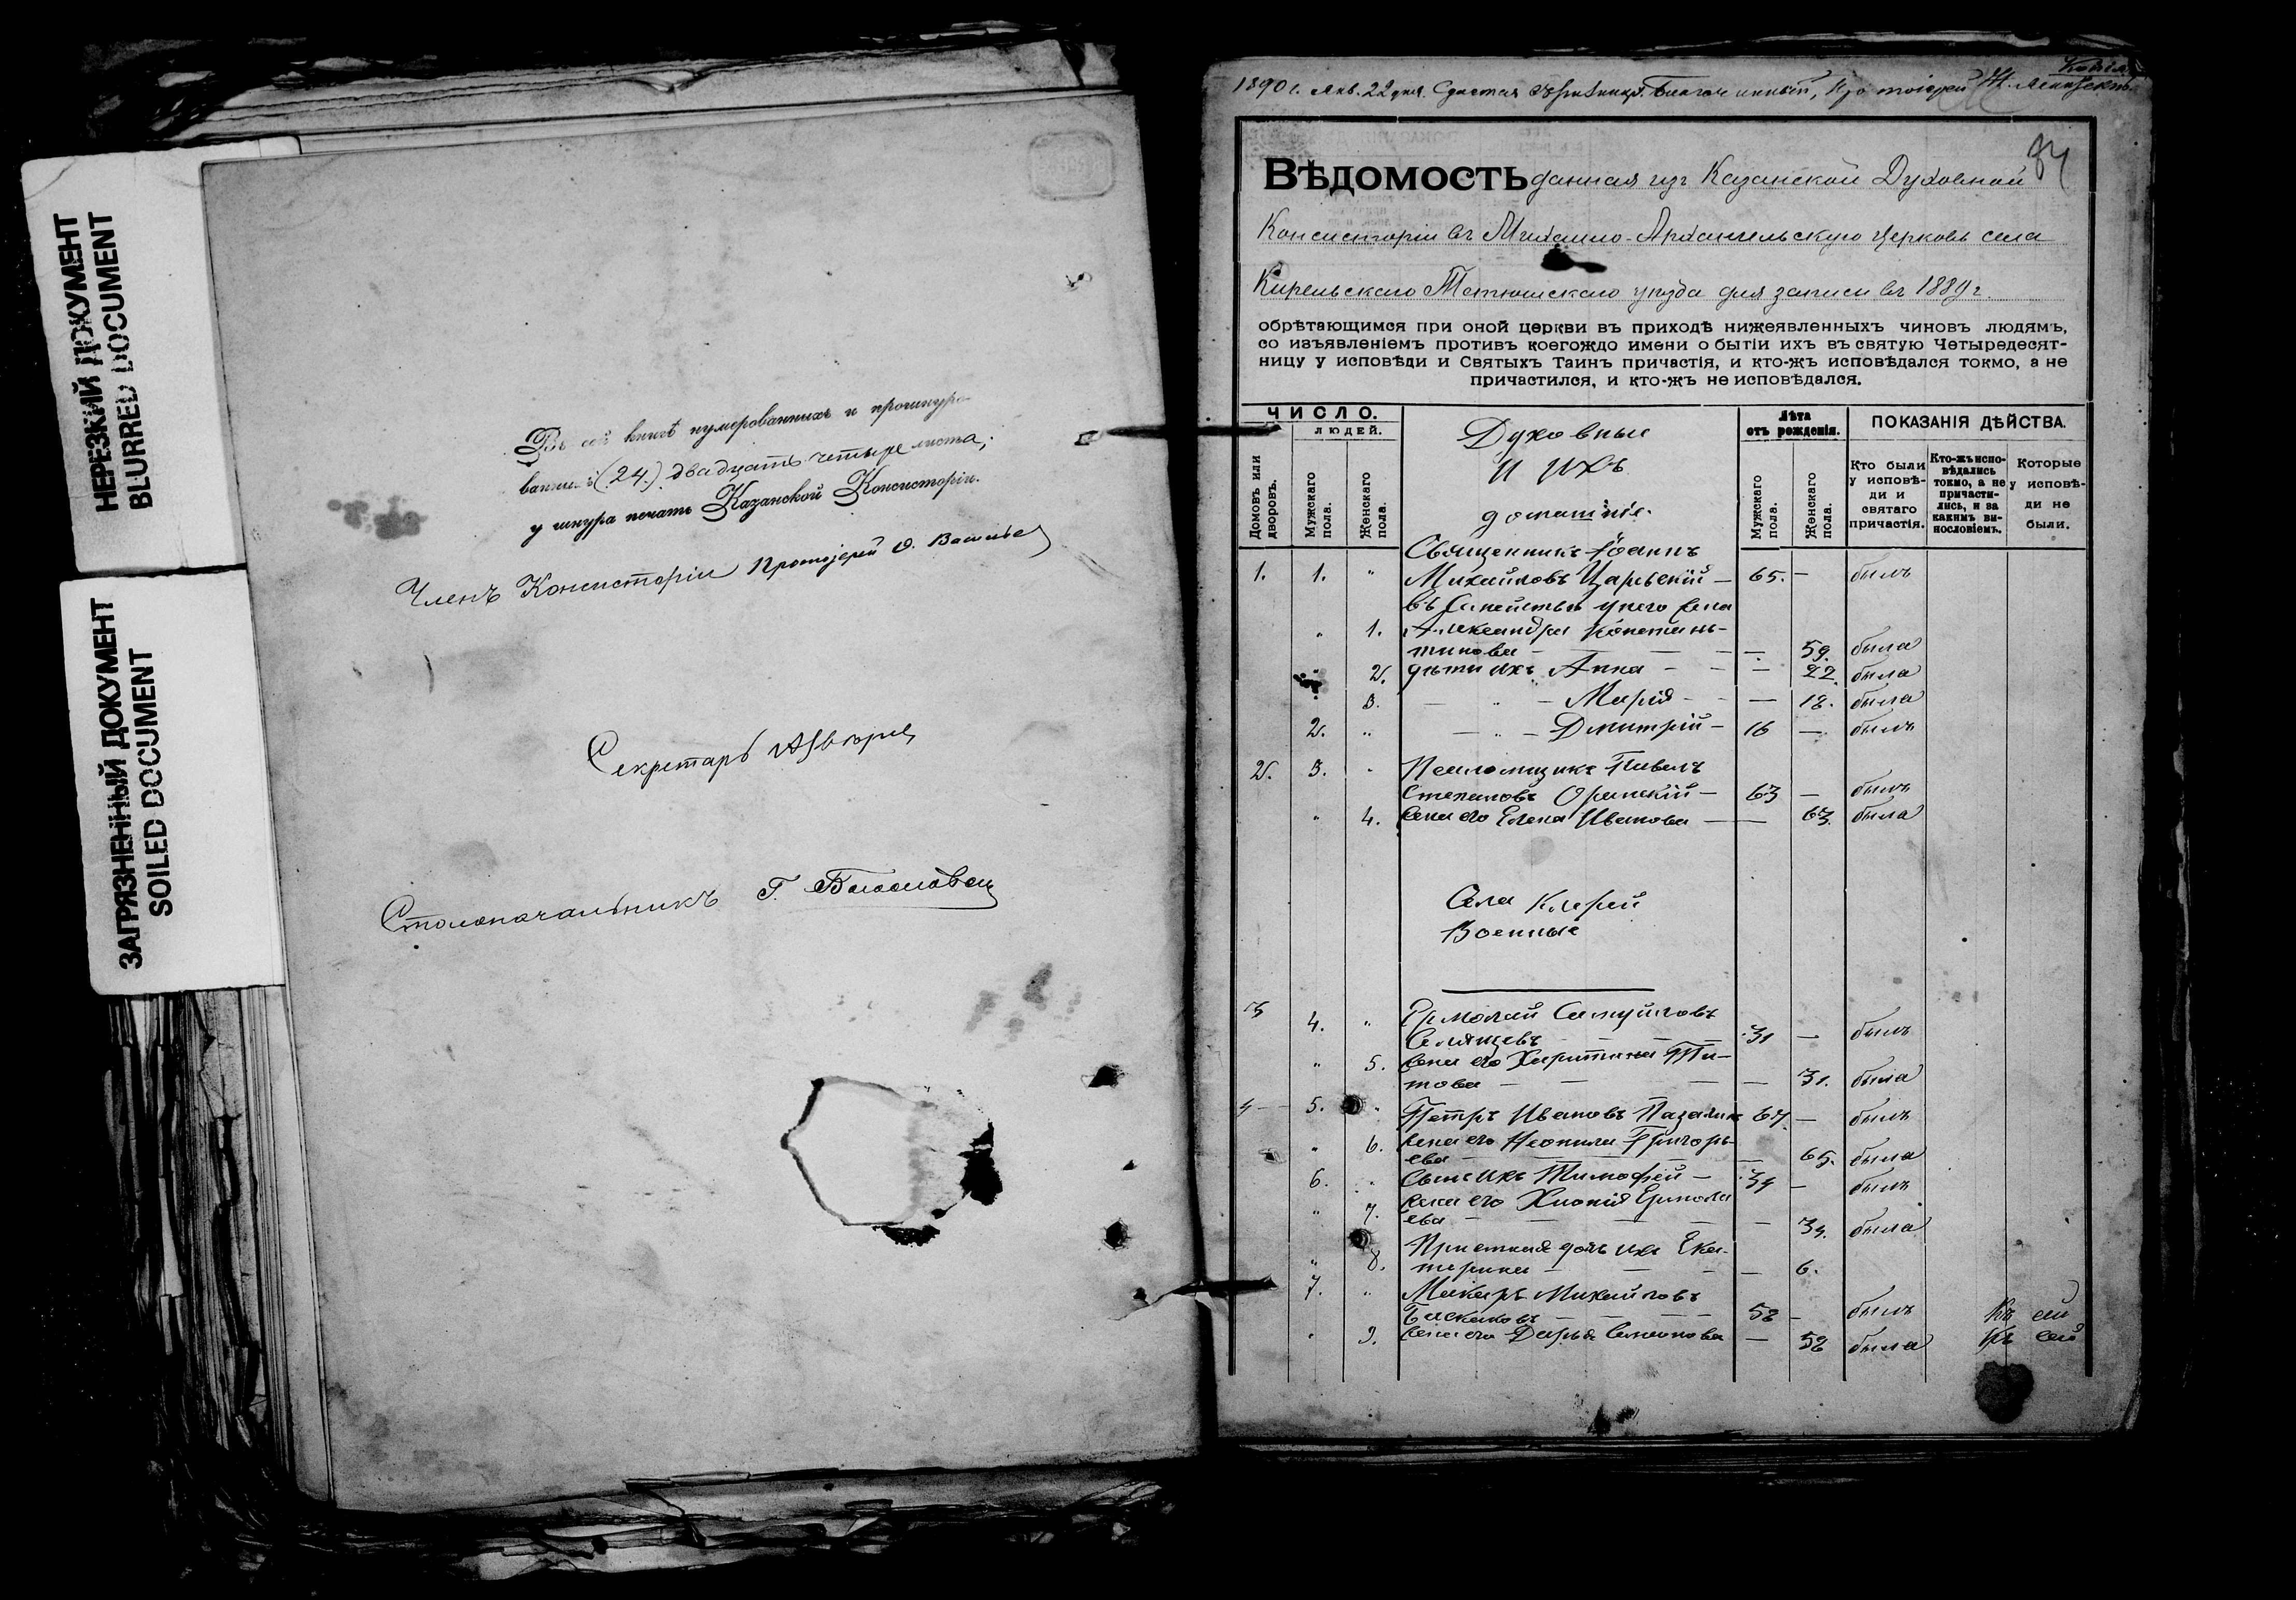 НЕРЕЗКИЙ ДОКУМЕНТ
BLURRED DOCUMENT
ЗАГРЯЗНЕННЫЙ ДОКУМЕНТ
SOILED DOCUMENT
Въ сей книгѣ нумерованныхъ и прошнуро
ванныхъ (24.) двадцать четыре листа,
у шнура печать Казанской Консисторіи.
Членъ Консисторіи Протоіерей
Секретарь
Столоначальникъ Г.
Копія
1890 г. Янв. 22 дня. Благочинный, Протоіерей
84
ВѢДОМОСТЬ данная изъ Казанской Духовной
Консисторіи въ Михаило-Архангельскую церковь села
Кирельскаго Тетюшскаго уѣзда для записи въ 1889 г.
обрѣтающимся при оной церкви въ приходѣ нижеявленныхъ чиновъ людямъ,
со изъявленіемъ противъ коегождо имени о бытіи ихъ въ святую Четыредесят-
ницу у исповѣди и Святыхъ Таинъ причастія, и кто-жъ исповѣдался токмо, а не
причастился, и кто-жъ не исповѣдался.
ЧИСЛО.
ЛЮДЕЙ.
Домовъ или дворовъ.
Мужскаго пола.
Женскаго пола.
Духовные
и ихъ
домашніе.
Лѣта
отъ рожденія.
Мужскаго пола.
Женскаго пола.
ПОКАЗАНІЯ ДѢЙСТВА.
Кто были у исповѣ-ди и святаго причастія.
Кто-жъ испо-вѣдались токмо, а не причасти-лись, и за какимъ ви-нословіемъ.
Которые у исповѣ-ди не были.
Священникъ Іоаннъ
1. 1. " Михайловъ Царевскій — 65. — былъ
въ семействѣ у него жена
" 1. Александра Констан-
тинова — — 59. была
2. дѣти ихъ Анна — — 22. была
3. — " — Марія — — 18. была
2. " — " — Дмитрій — 16 — былъ
2. 3. " Псаломщикъ Павелъ
Степановъ — 63 — былъ
" 4. жена его Елена Иванова — — 63. была
Села Кирели
Военные
3 4. " Ермолай Самуиловъ
31 — былъ
" 5. жена его Харитина Ти-
това — — 31. была
4 5. " Петръ Ивановъ 67. — былъ
" 6. жена его Неонила Григорь-
ева — — 65. была
6. " Сынъ ихъ Тимофей — 34 — былъ
" 7. жена его Хіонія Ермола
ева — — 34. была
" 8. Пріемная дочь ихъ Ека-
терина — — 6.
7. " Макаръ Михайловъ
58 — былъ
" 9. жена его Дарья Симонова — 58 была